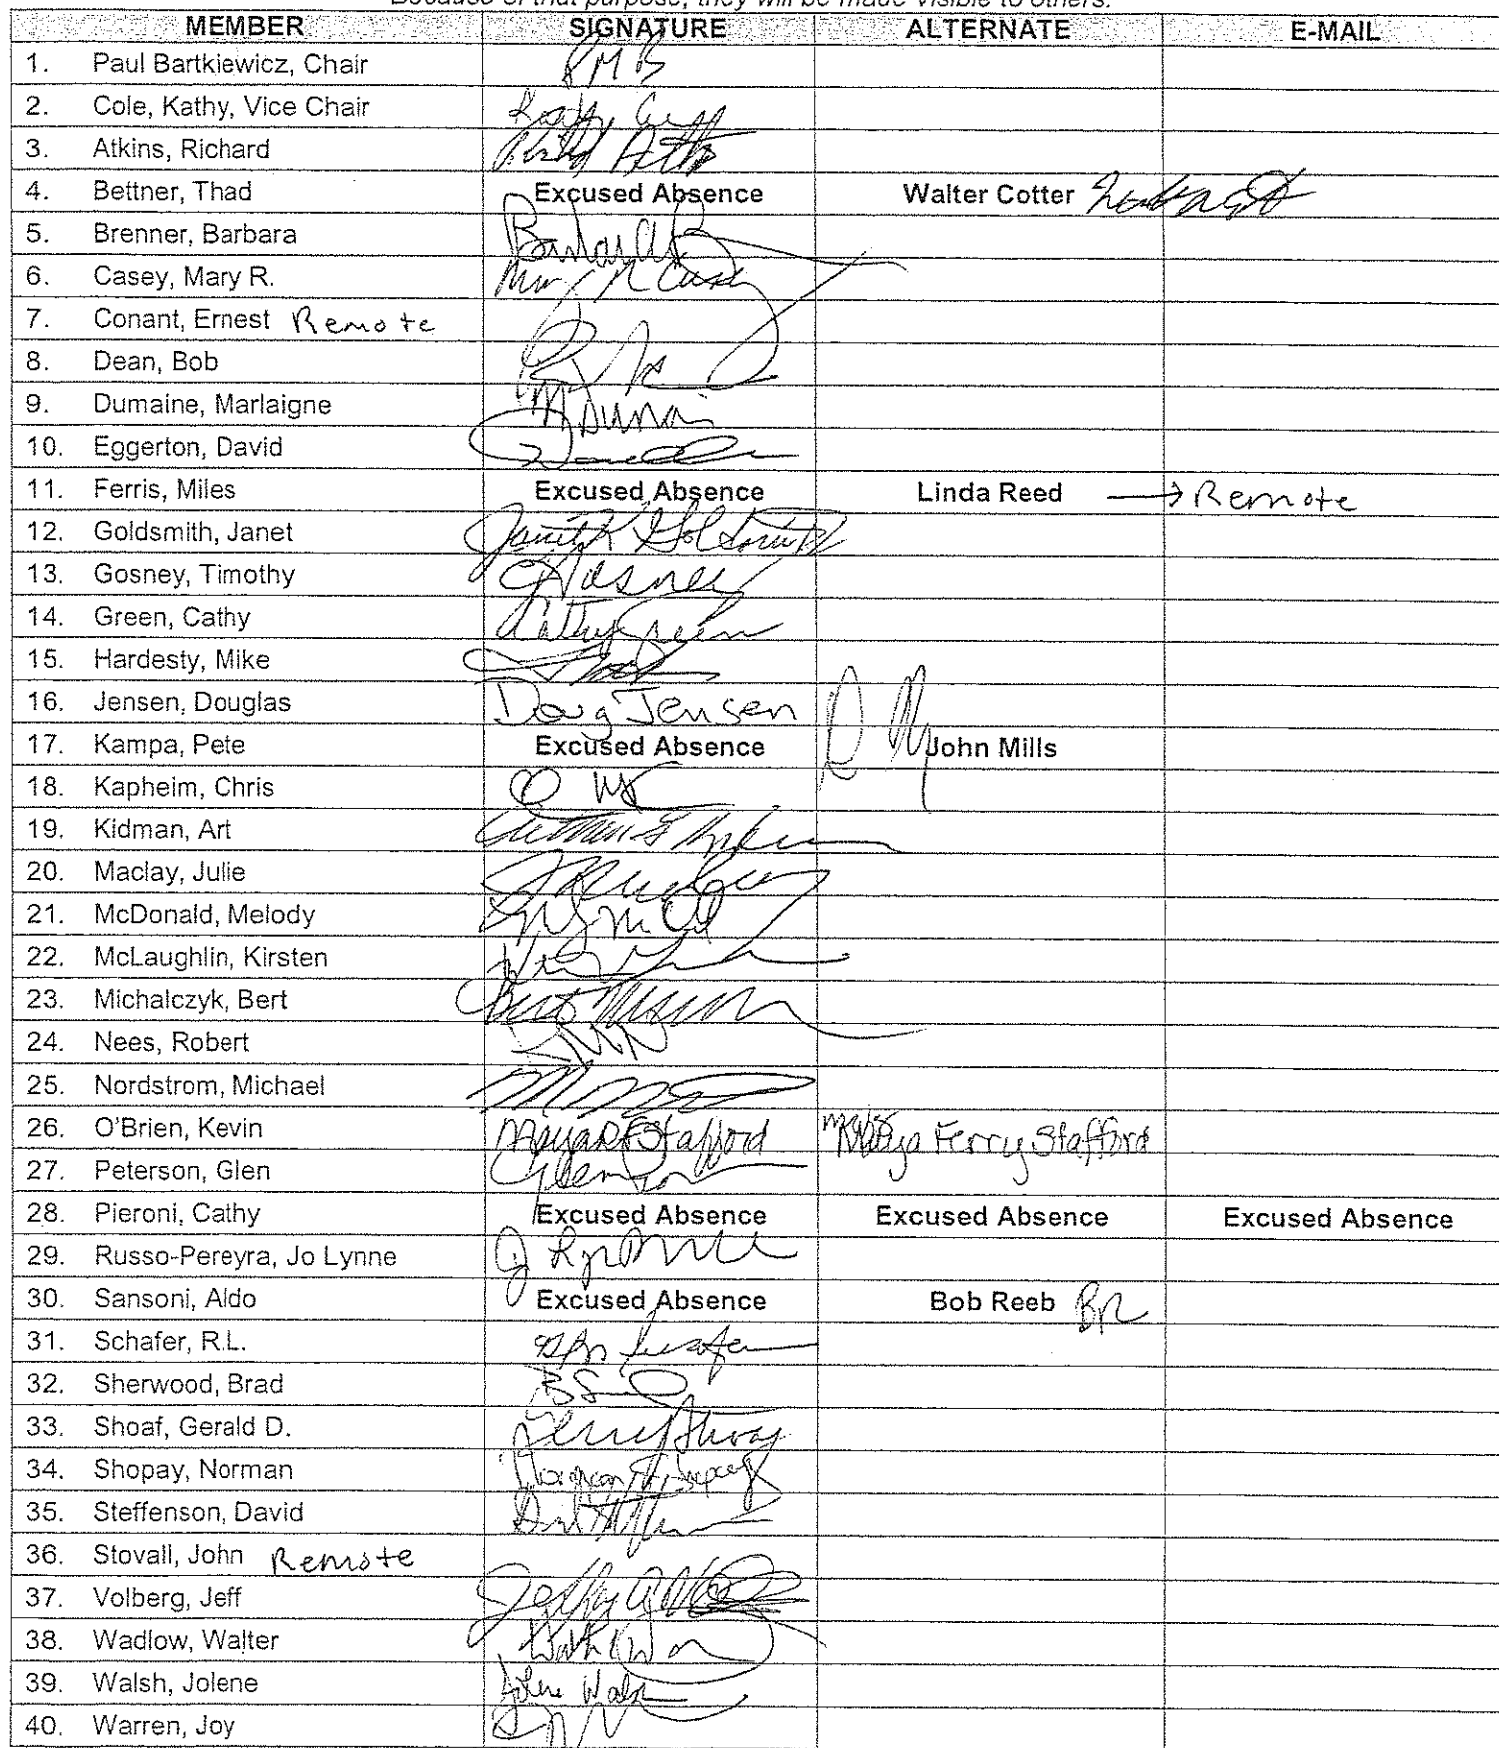 Because of that purpose, they will be made visible to others.
MEMBER SIGNATURE ALTERNATE E-MAIL
1. Paul Bartkiewicz, Chair PMB
2. Cole, Kathy, Vice Chair
3. Atkins, Richard
4. Bettner, Thad Excused Absence Walter Cotter
5. Brenner, Barbara
6. Casey, Mary R. Mary R Casey
7. Conant, Ernest Remote
8. Dean, Bob
9. Dumaine, Marlaigne
10. Eggerton, David
11. Ferris, Miles Excused Absence Linda Reed → Remote
12. Goldsmith, Janet Janet K Goldsmith
13. Gosney, Timothy
14. Green, Cathy Cathy Green
15. Hardesty, Mike
16. Jensen, Douglas Doug Jensen
17. Kampa, Pete Excused Absence John Mills
18. Kapheim, Chris
19. Kidman, Art
20. Maclay, Julie
21. McDonald, Melody
22. McLaughlin, Kirsten
23. Michalczyk, Bert
24. Nees, Robert
25. Nordstrom, Michael
26. O'Brien, Kevin Maya F Stafford Maya Ferry Stafford
27. Peterson, Glen
28. Pieroni, Cathy Excused Absence Excused Absence Excused Absence
29. Russo-Pereyra, Jo Lynne
30. Sansoni, Aldo Excused Absence Bob Reeb BR
31. Schafer, R.L.
32. Sherwood, Brad
33. Shoaf, Gerald D.
34. Shopay, Norman
35. Steffenson, David
36. Stovall, John Remote
37. Volberg, Jeff
38. Wadlow, Walter
39. Walsh, Jolene Jolene Walsh
40. Warren, Joy